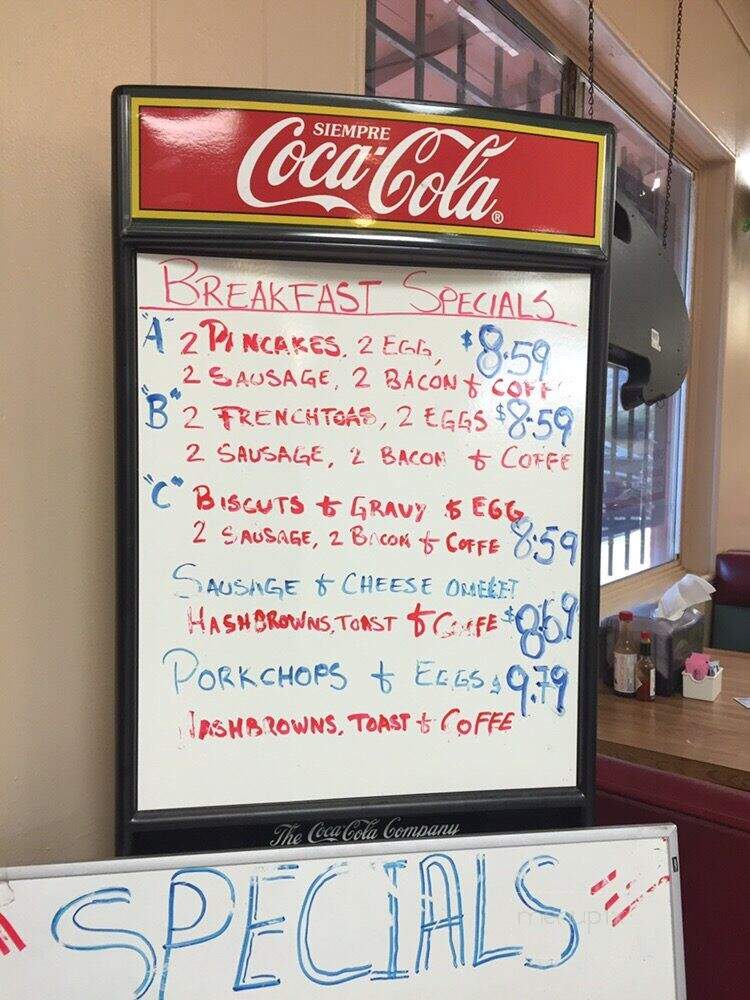 SIEMPRE
Coca-Cola ®
BREAKFAST SPECIALS
"A" 2 PINCAKES, 2 EGG, $8.59
2 SAUSAGE, 2 BACON & COFF
"B" 2 FRENCHTOAS, 2 EGGS $8.59
2 SAUSAGE, 2 BACON & COFFE
"C" BISCUTS & GRAVY & EGG
2 SAUSAGE, 2 BACON & COFFE 8.59
SAUSAGE & CHEESE OMELET
HASHBROWNS, TOAST & COFFE $8.69
PORKCHOPS & EGGS $9.79
HASHBROWNS, TOAST & COFFE
The Coca-Cola Company
SPECIALS